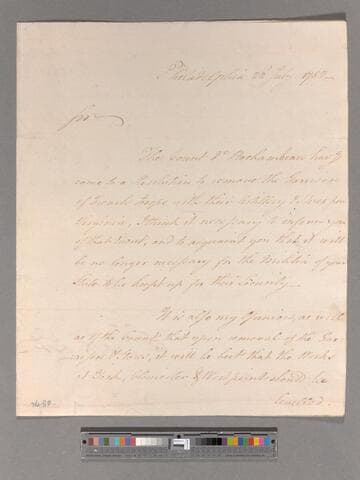 Philadelphia 22d July 1782
Sir
The Count De Rochambeau having
come to a Resolution to remove the Garrison
of French Troops with their Artillery & Stores from
Virginia, I think it necessary to inform you
of that Event, and to acquaint you that it will
be no longer necessary for the Militia of your
State to be kept up for their Security
It is also my Opinion, as well
as of the Count that upon removal of the Gar
rison & Stores, it will be best that the Works
at York, Gloucester & West point should be
levelled.